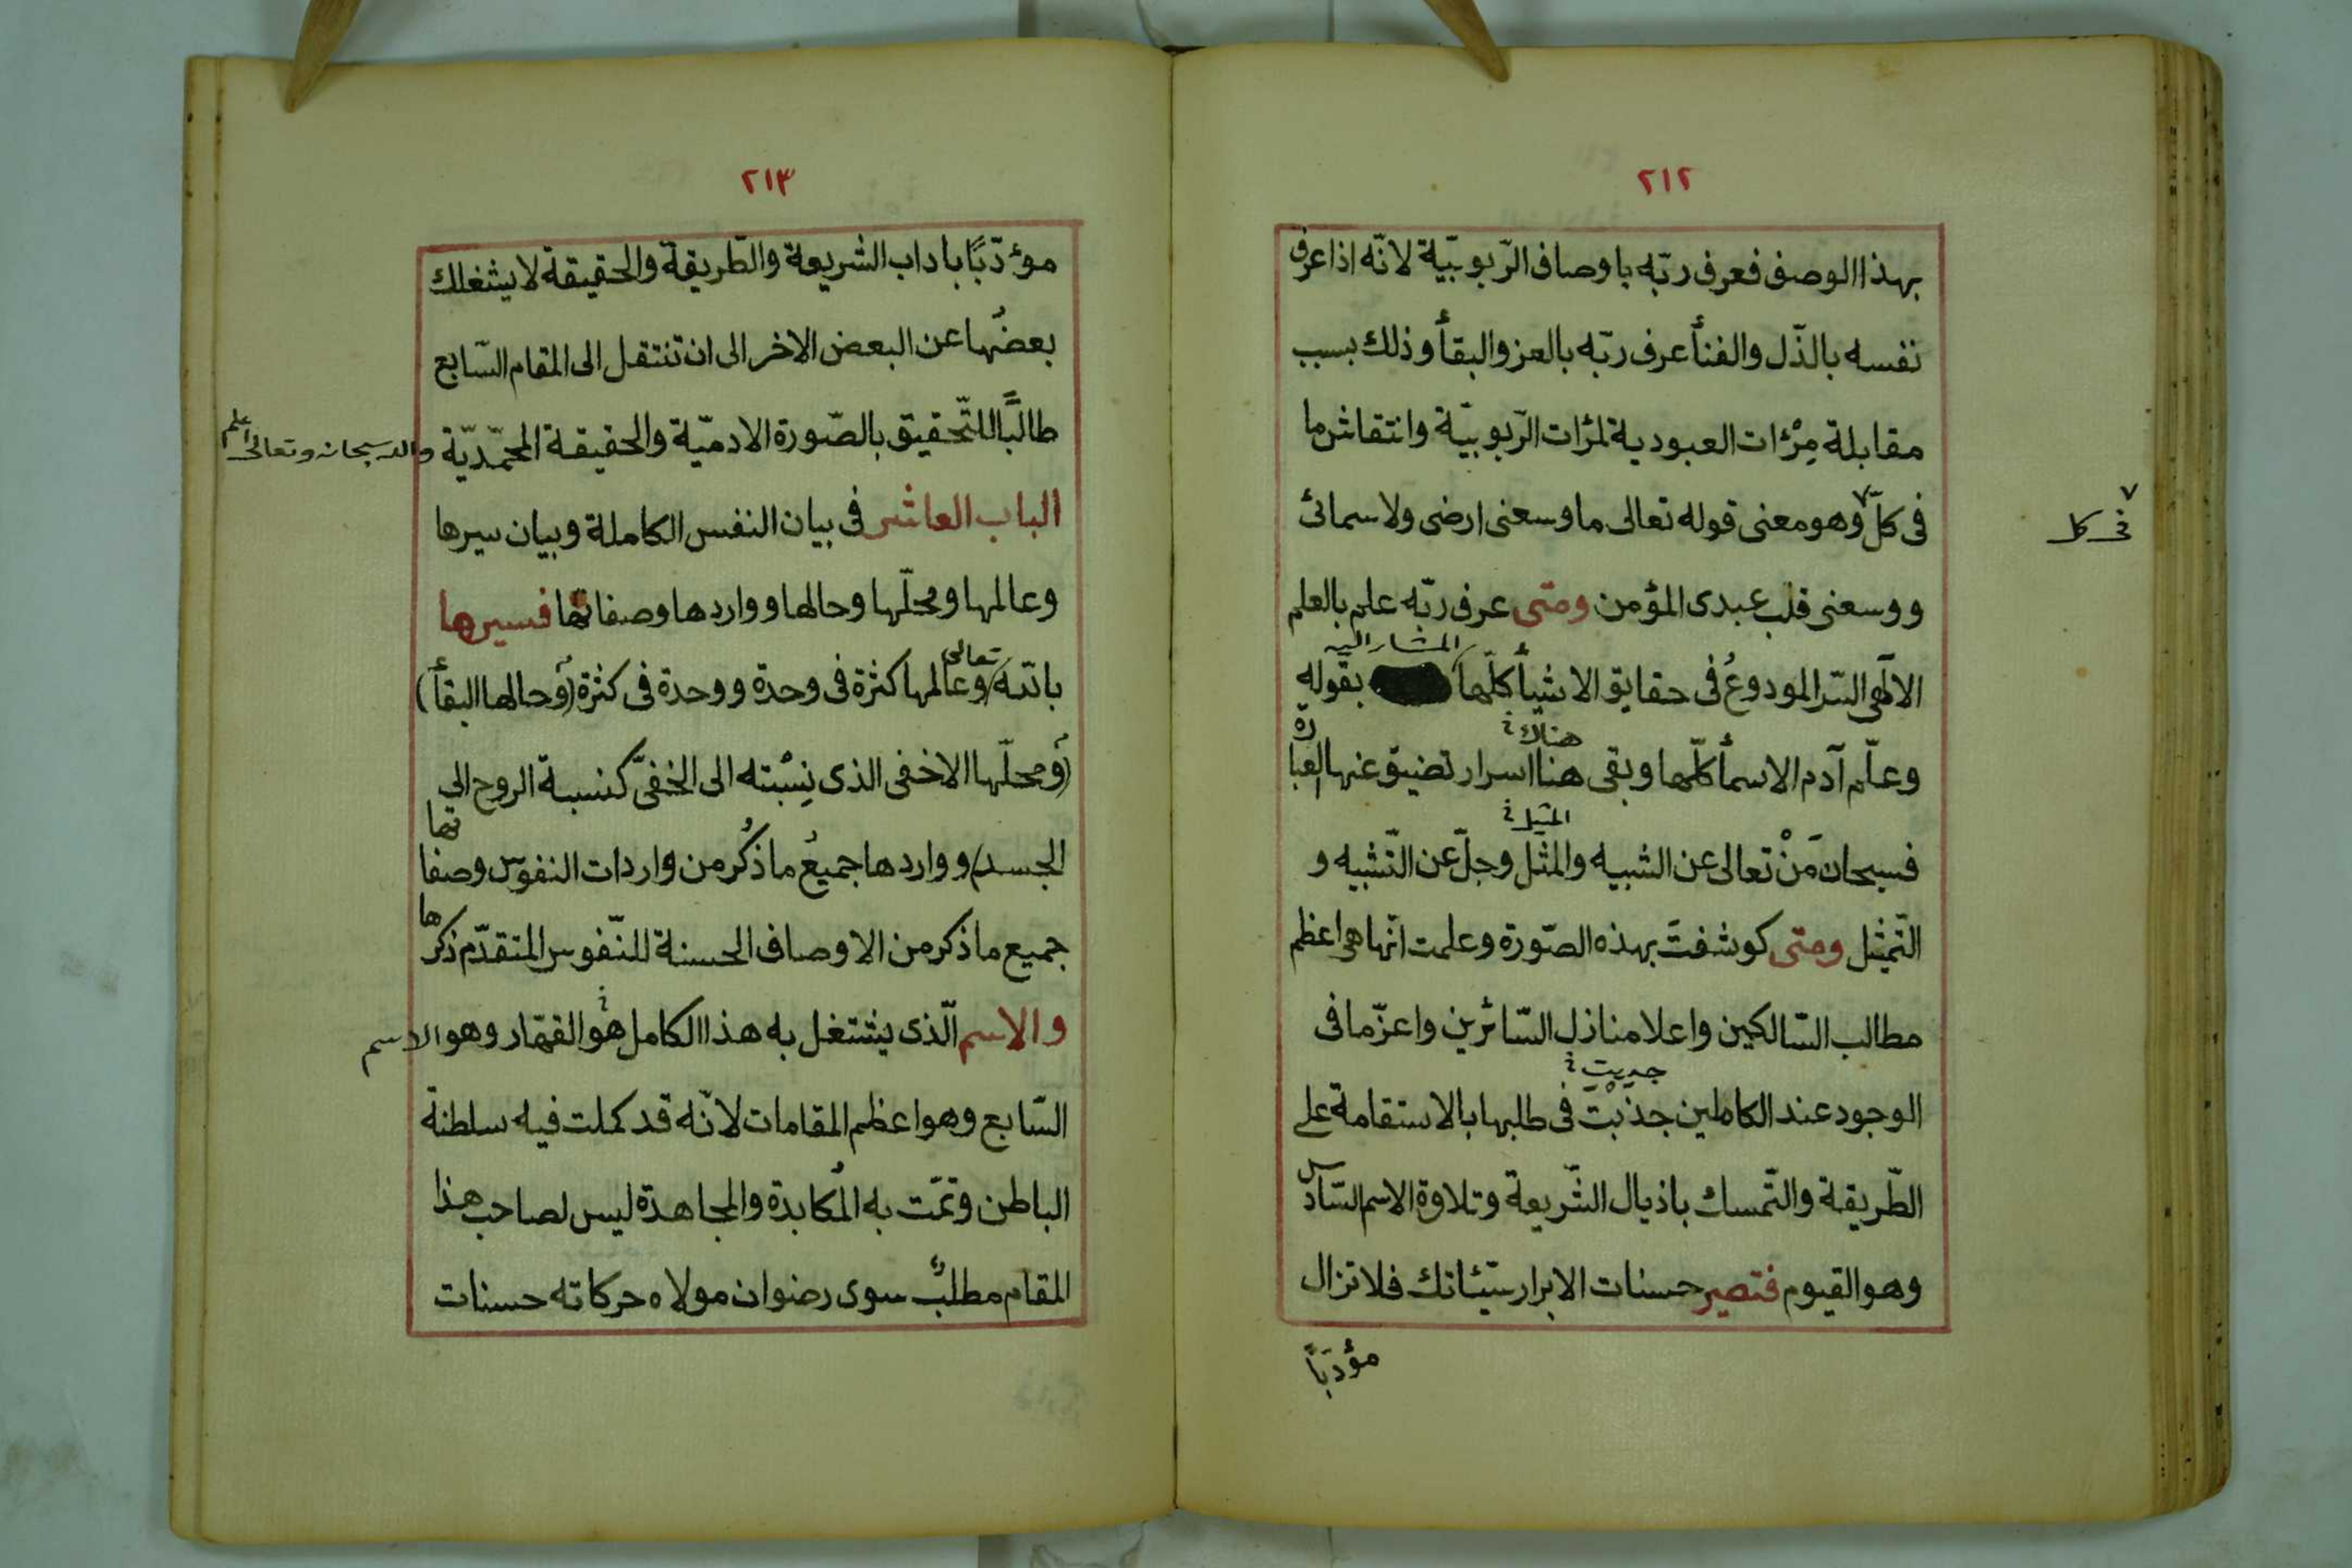 ٢١٢
بهذا الوصف فعرف ربّه باوصاف الرّبوبيّة لانّه اذا عرف
نفسه بالذّل والفنأ عرف ربّه بالعز والبقأ وذلك بسبب
مقابلة مِرْئات العبودية لمرئات الرّبوبيّة وانتقاش ما
فى كلّ ٧ وهو معنى قوله تعالى ما وسعنى ارضى ولا سمائى
٧ فى كل
ووسعنى قلب عبدى المؤمن ومتى عرف ربّه علم بالعلم
الالٓهى السّر المودوعُ فى حقايق الاشيأ كلّها المشار اليه بقوله
وعلّم آدم الاسمأ كلّها وبقى هنا اسرار تضيق عنها العبارة
هناك
فسبحان مَنْ تعالى عن الشبيه والمثل وجلّ عن التّشبيه و
المثيل
التّمثيل ومتى كوشفتَ بهذه الصّورة وعلمت انّها هى اعظم
مطالب السّالكين واعلا منازل السّائرين واعزّ ما فى
الوجود عند الكاملين جذبْتَ فى طلبها بالاستقامة على
الطّريقة والتّمسك باذيال الشّريعة وتلاوة الاسم السّادس
وهو القيوم فتصير حسنات الابرار سيّئاتك فلا تزال
مؤدبًا
٢١٣
مؤدّبًا باداب الشريعة والطّريقة والحقيقة لا يشغلك
بعضُها عن البعض الاخر الى ان تنتقل الى المقام السّابع
طالبًا للتّحقيق بالصّورة الادميّة والحقيقة المحمّديّة والله سبحانه وتعالى اعلم
الباب العاشر فى بيان النفس الكاملة وبيان سيرها
وعالمها ومحلّها وحالها وواردها وصفاتها فسيرها
بالله تعالى وعالمها كثرة فى وحدة ووحدة فى كثرة (وحالها البقأ)
(ومحلّها الاخفى الذى نِسْبته الى الخفىّ كنسبة الروح الى
الجسد) وواردها جميعُ ما ذُكُر من واردات النفوس وصفاتها
جميع ما ذكر من الاوصاف الحسنة للنّفوس المتقدّم ذكرها
والاسم الّذى يشتغل به هذا الكامل هو القهّار وهو الاسم
السّابع وهو اعظم المقامات لانّه قد كملت فيه سلطنة
الباطن وتمّت به المُكابدة والمجاهدة ليس لصاحب هذا
المقام مطلبٌ سوى رضوان مولاه حركاته حسنات